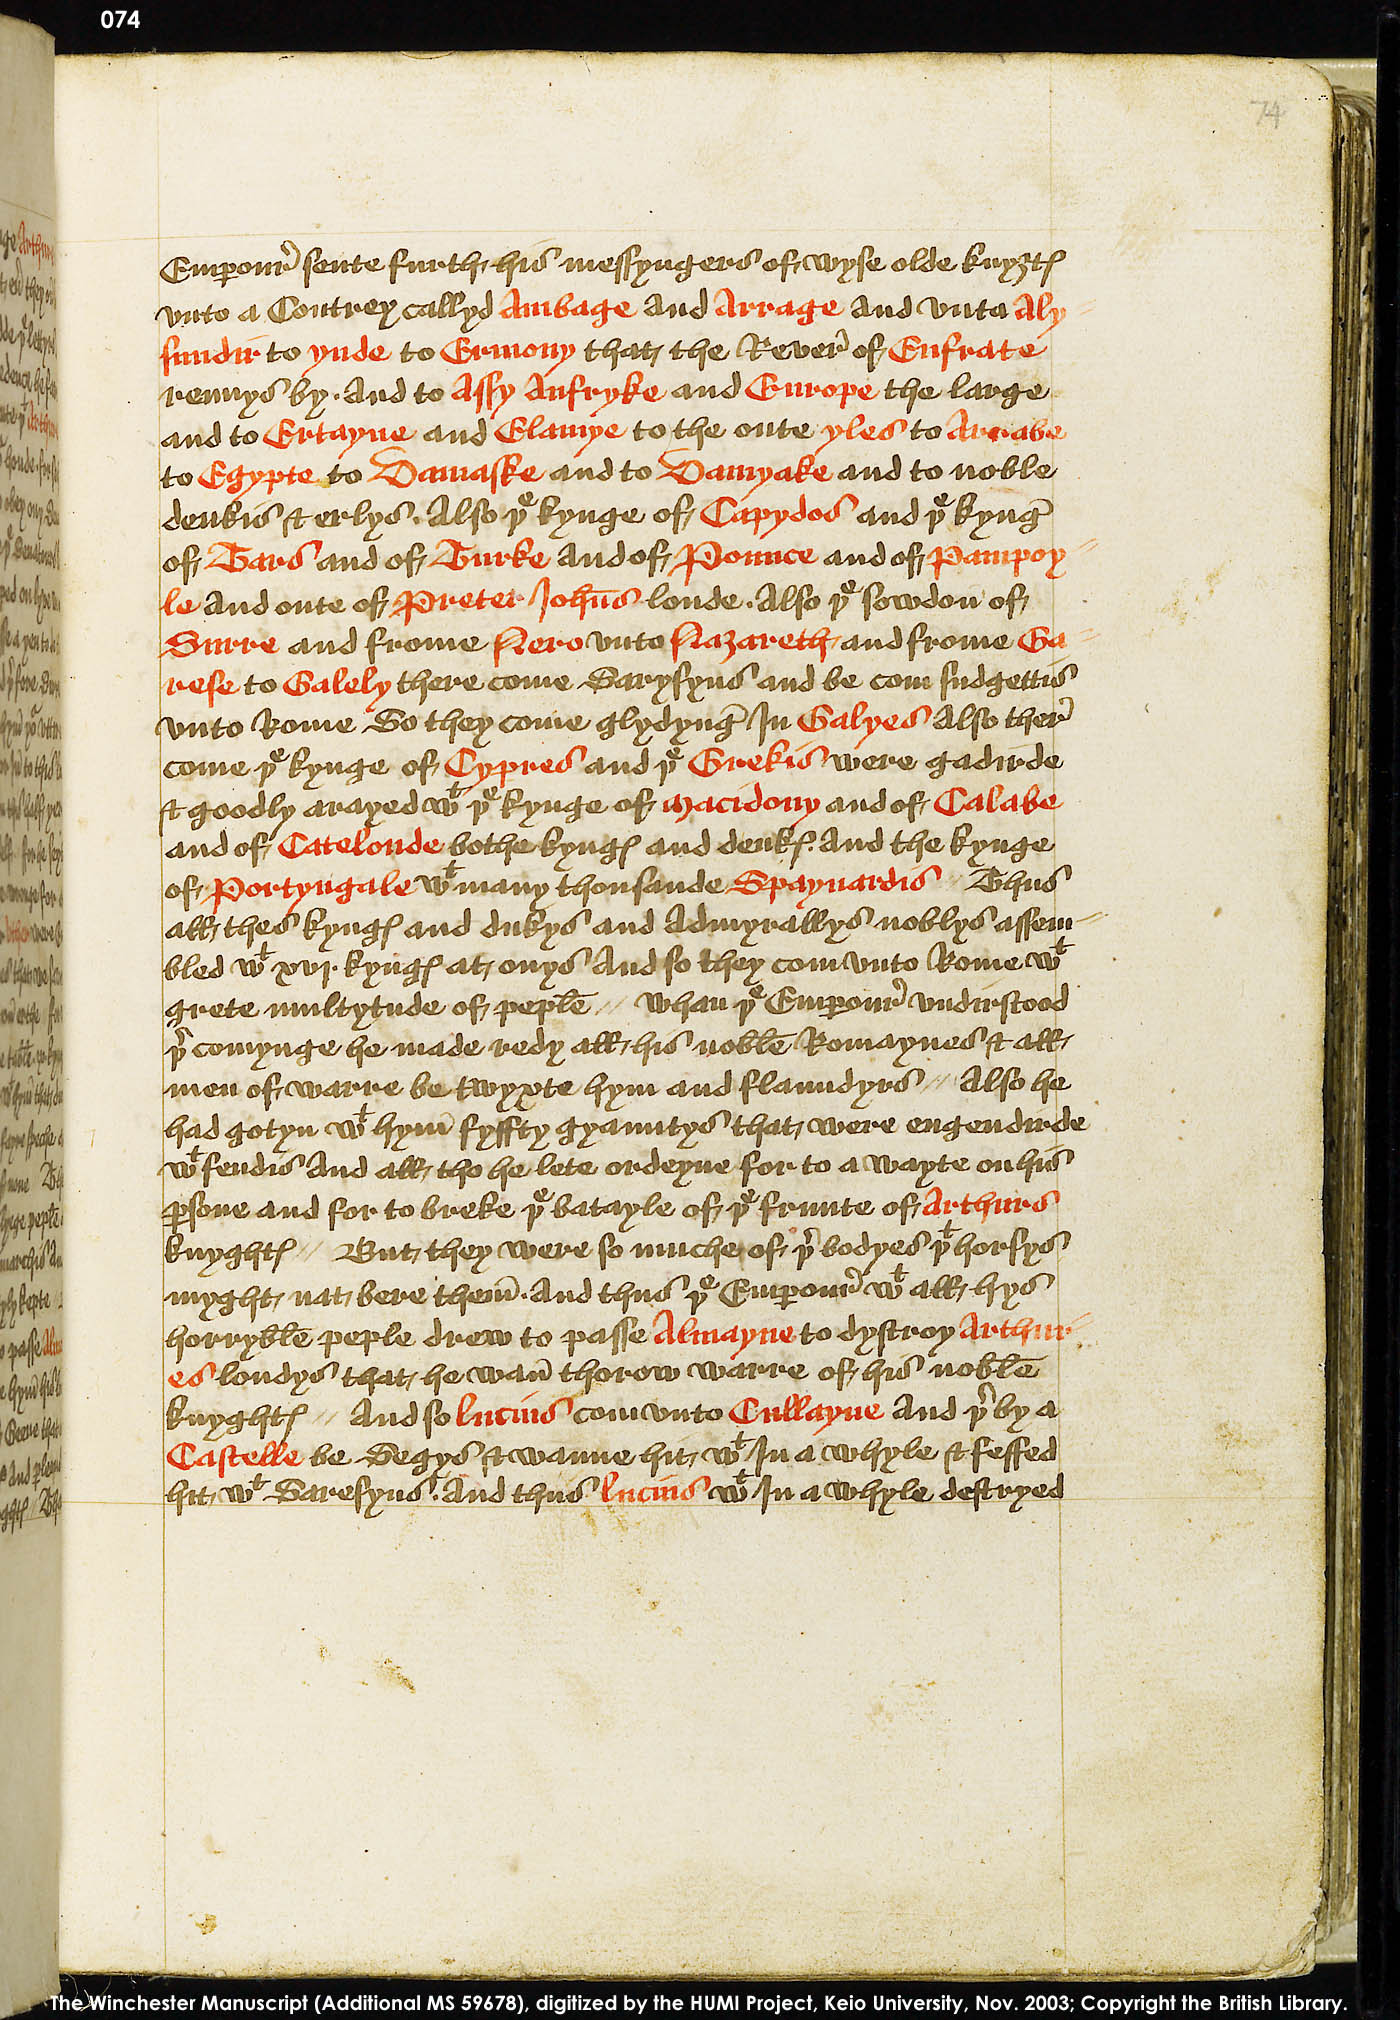 074
74
Emꝑour̉ sente furth his messyngers of wyse olde knyȝtꝭ
vnto a Contrey callyd Ambage and Arrage and vnto Aly
sundir to ynde to Ermony that the Rever̉ of Eufrate
rennys by. And to Assy Aufryke and Europe the large
and to Ertayne and Elamye to the oute yles to Arrabe
to Egypte to Damaske and to Damyake and to noble
deukis & erlys. Also þᵉ kynge of Capydos and þᵉ kyng̉
of Tars and of Turke and of Pounce and of Pampoy
le and oute of Preter John̄s londe. Also þᵉ sowdon of
Surre and frome Nero vnto Nazareth and frome Ga
rese to Galely there come Sarysyns and be com sudgettis
vnto Rome So they come glydyng̉ In Galyes Also ther̉
come þᵉ kynge of Cypres and þᵉ Grekis were gadirde
& goodly arayed wᵗ þᵉ kynge of Macidony and of Calabe
and of Catelonde bothe kyngꝭ and deukꝭ. And the kynge
of Portyngale wᵗ many thousande Spaynardis // Thus
all thes kyngꝭ and dukys and Admyrallys noblys assem
bled wᵗ xvj. kyngꝭ at onys And so they com vnto Rome wᵗ
grete multytude of peple // Whan þᵉ Emꝑour̉ vndirstood
þ̉ comynge he made redy all his noble Romaynes & all
men of warre be twyxte hym and Flaundyrs // Also he
had gotyn wᵗ hym̄ fyffty gyauntys that were engendirde
wᵗ fendis And all tho he lete ordeyne for to a wayte on his
ꝑsone and for to breke þᵉ batayle of þᵉ frunte of Arthurs
knyghtꝭ // But they were so muche of þ̉ bodyes þᵗ horsys
myght nat bere them̄. And thus þᵉ Emꝑour̉ wᵗ all hys
horryble peple drew to passe Almayne to dystroy Arthur
es londys that he wan̄ thorow warre of his noble
knyghtꝭ // And so lucius com vnto Cullayne And þ̉ by a
Castelle be Segys & wanne hit wᵗ In a whyle & feffed
hit wᵗ Saresyns. And thus lucius wᵗ In a whyle destryed
The Winchester Manuscript (Additional MS 59678), digitized by the HUMI Project, Keio University, Nov. 2003; Copyright the British Library.